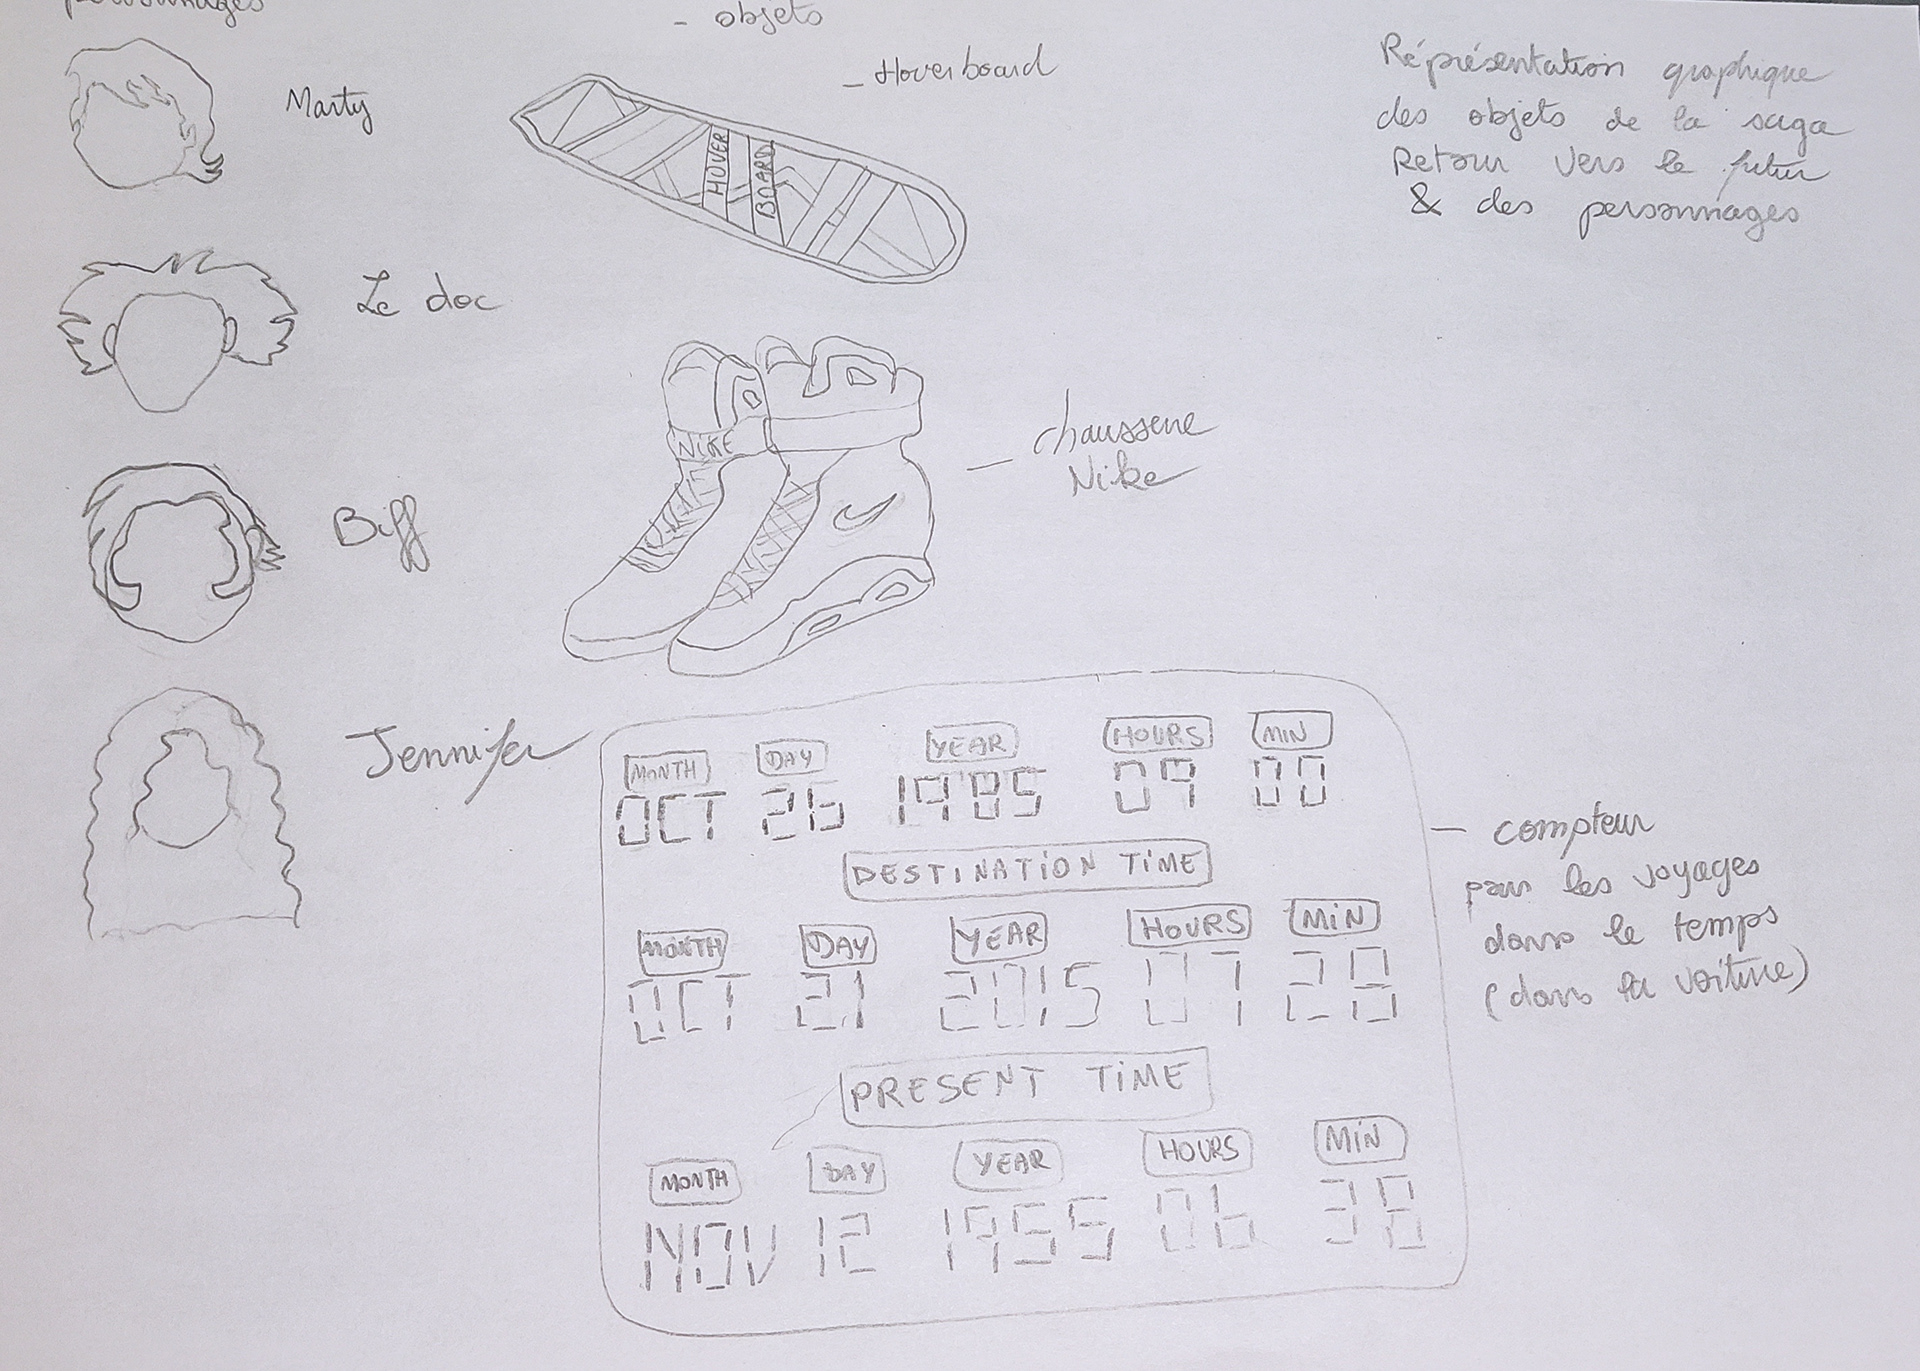 personnages
- objets
Marty
- Hoverboard
HOVER
BOARD
Réprésentation graphique
des objets de la saga
Retour vers le futur
& des personnages
Le doc
NIKE
- chaussure
Nike
Biff
Jennifer
MONTH DAY YEAR HOURS MIN
OCT 26 1985 09 00
DESTINATION TIME
MONTH DAY YEAR HOURS MIN
OCT 21 2015 07 28
PRESENT TIME
MONTH DAY YEAR HOURS MIN
NOV 12 1955 06 38
- compteur
pour les voyages
dans le temps
(dans la voiture)